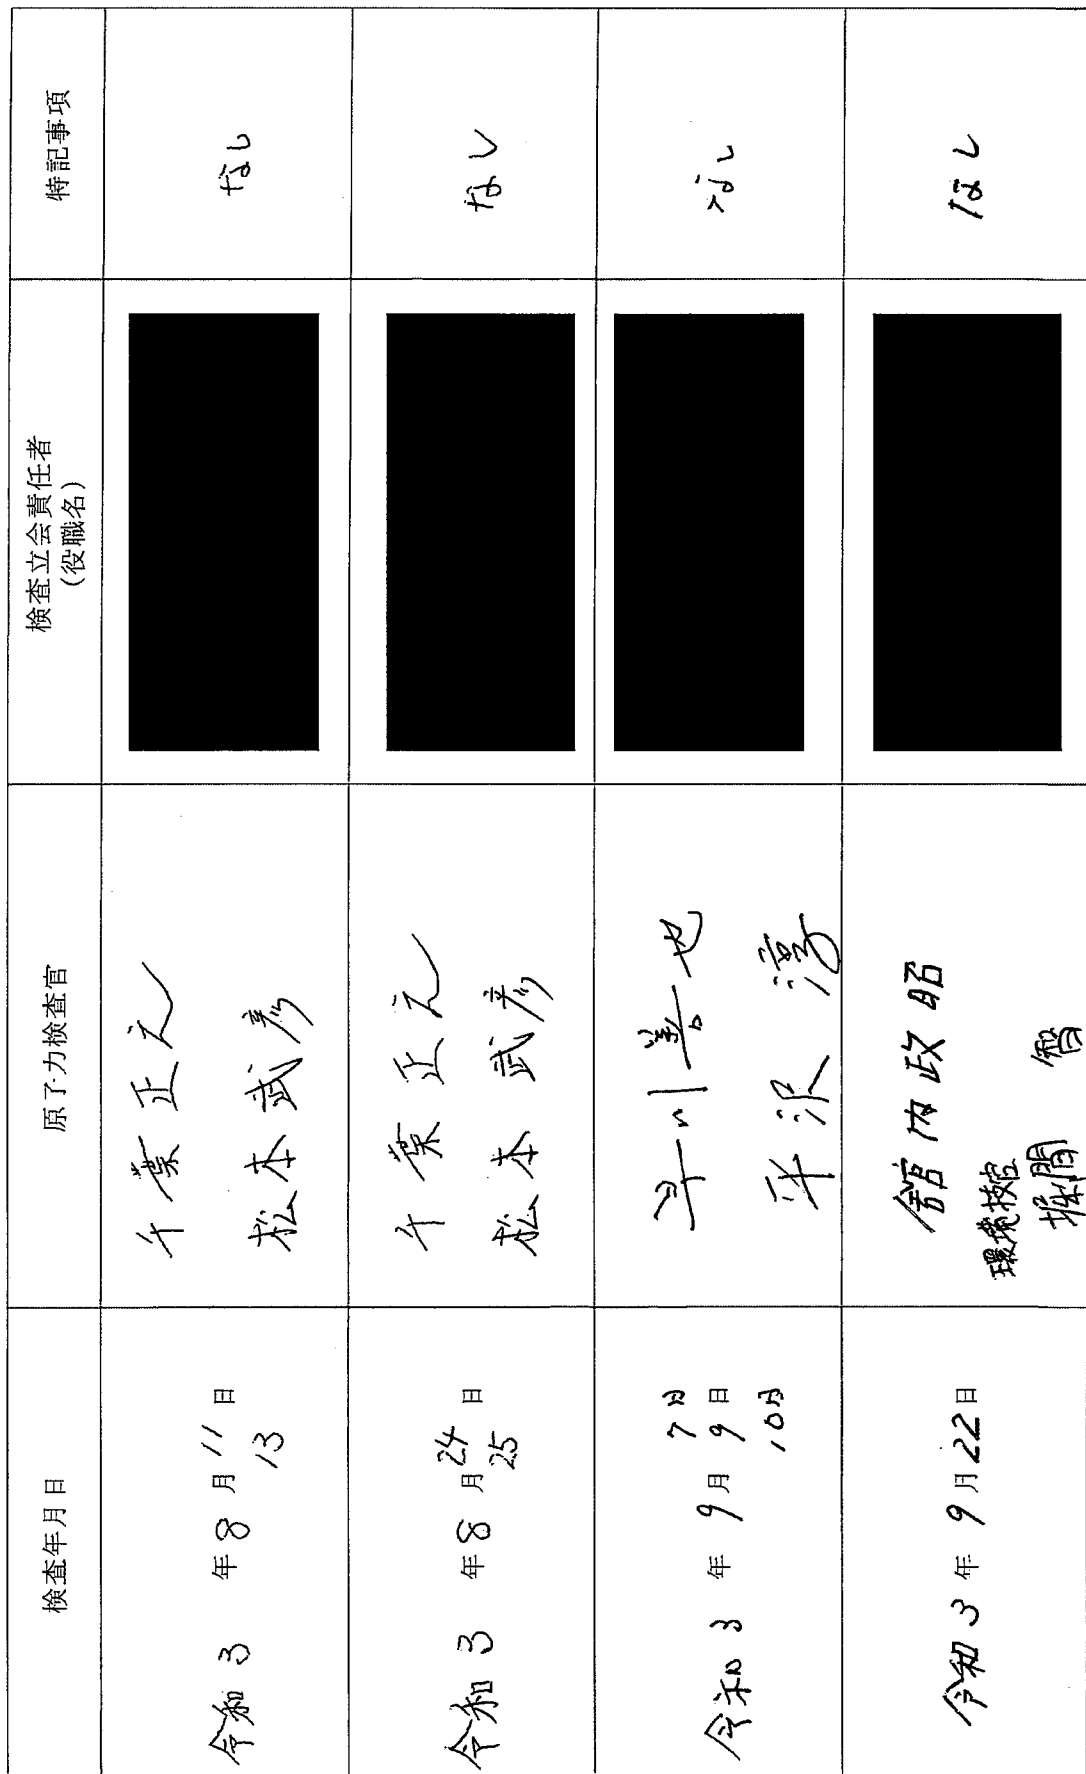 検査年月日
原子力検査官
検査立会責任者
(役職名)
特記事項
令和 3 年 8 月 11 日
13
千葉正之
松本武彦
なし
令和 3 年 8 月 24 日
25
千葉正之
松本武彦
なし
令和 3 年 9 月 7日
9 日
10日
早川善也
平沢淳
なし
令和 3 年 9 月 22 日
舘内政昭
環境技官
堀間智
なし